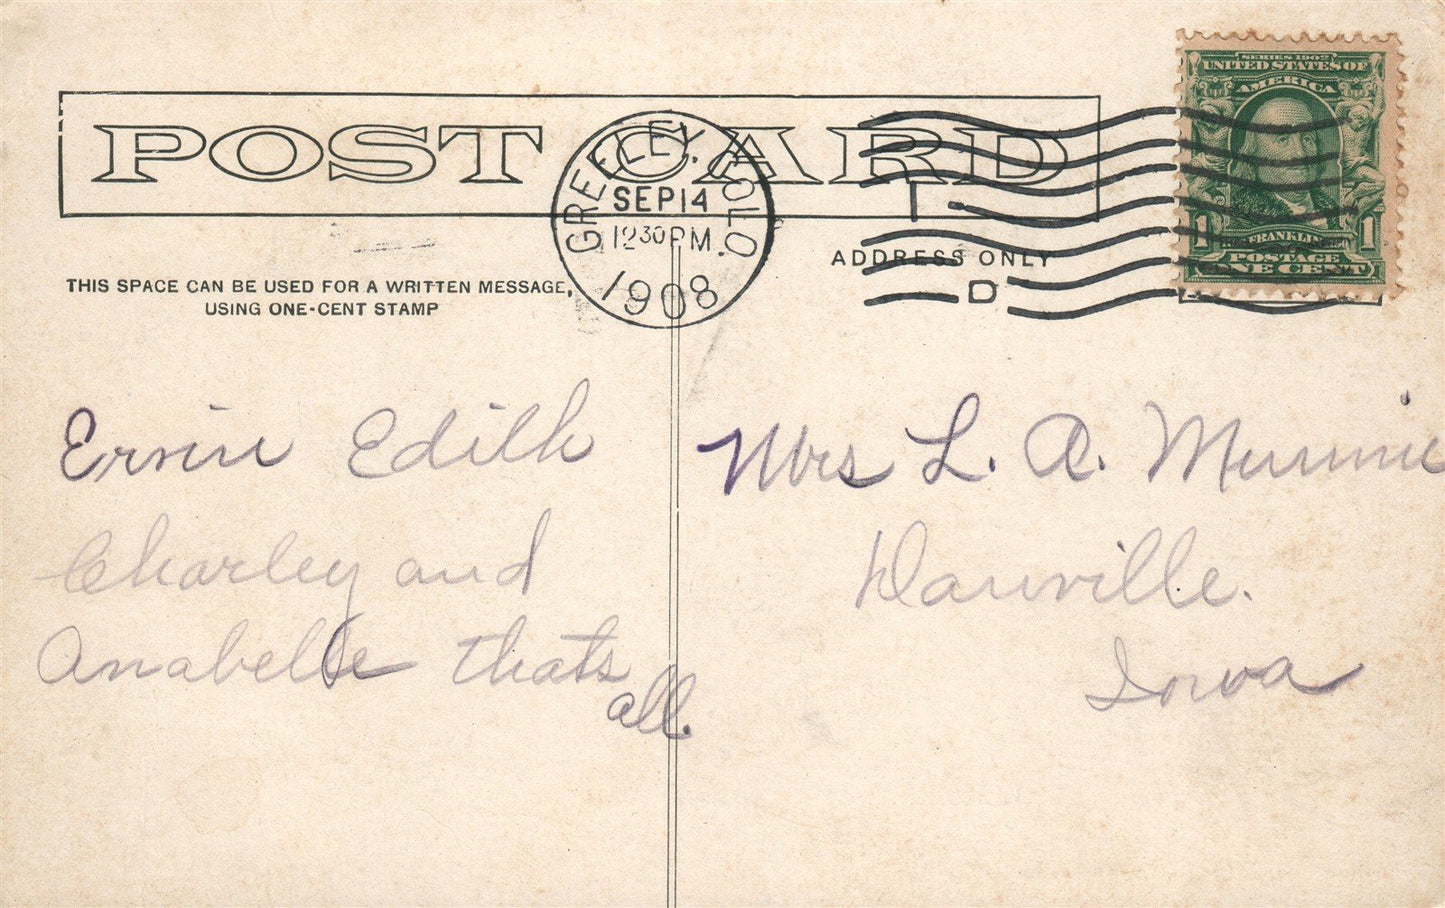 POST CARD
GREELEY, COLO.
SEP 14
12 30 PM
1908
1
D
SERIES 1902
UNITED STATES OF
AMERICA
FRANKLIN
1 1
POSTAGE
ONE CENT
THIS SPACE CAN BE USED FOR A WRITTEN MESSAGE,
USING ONE-CENT STAMP
ADDRESS ONLY
Ervin Edith
Charley and
Anabelle thats
all.
Mrs L. A.
Danville.
Iowa